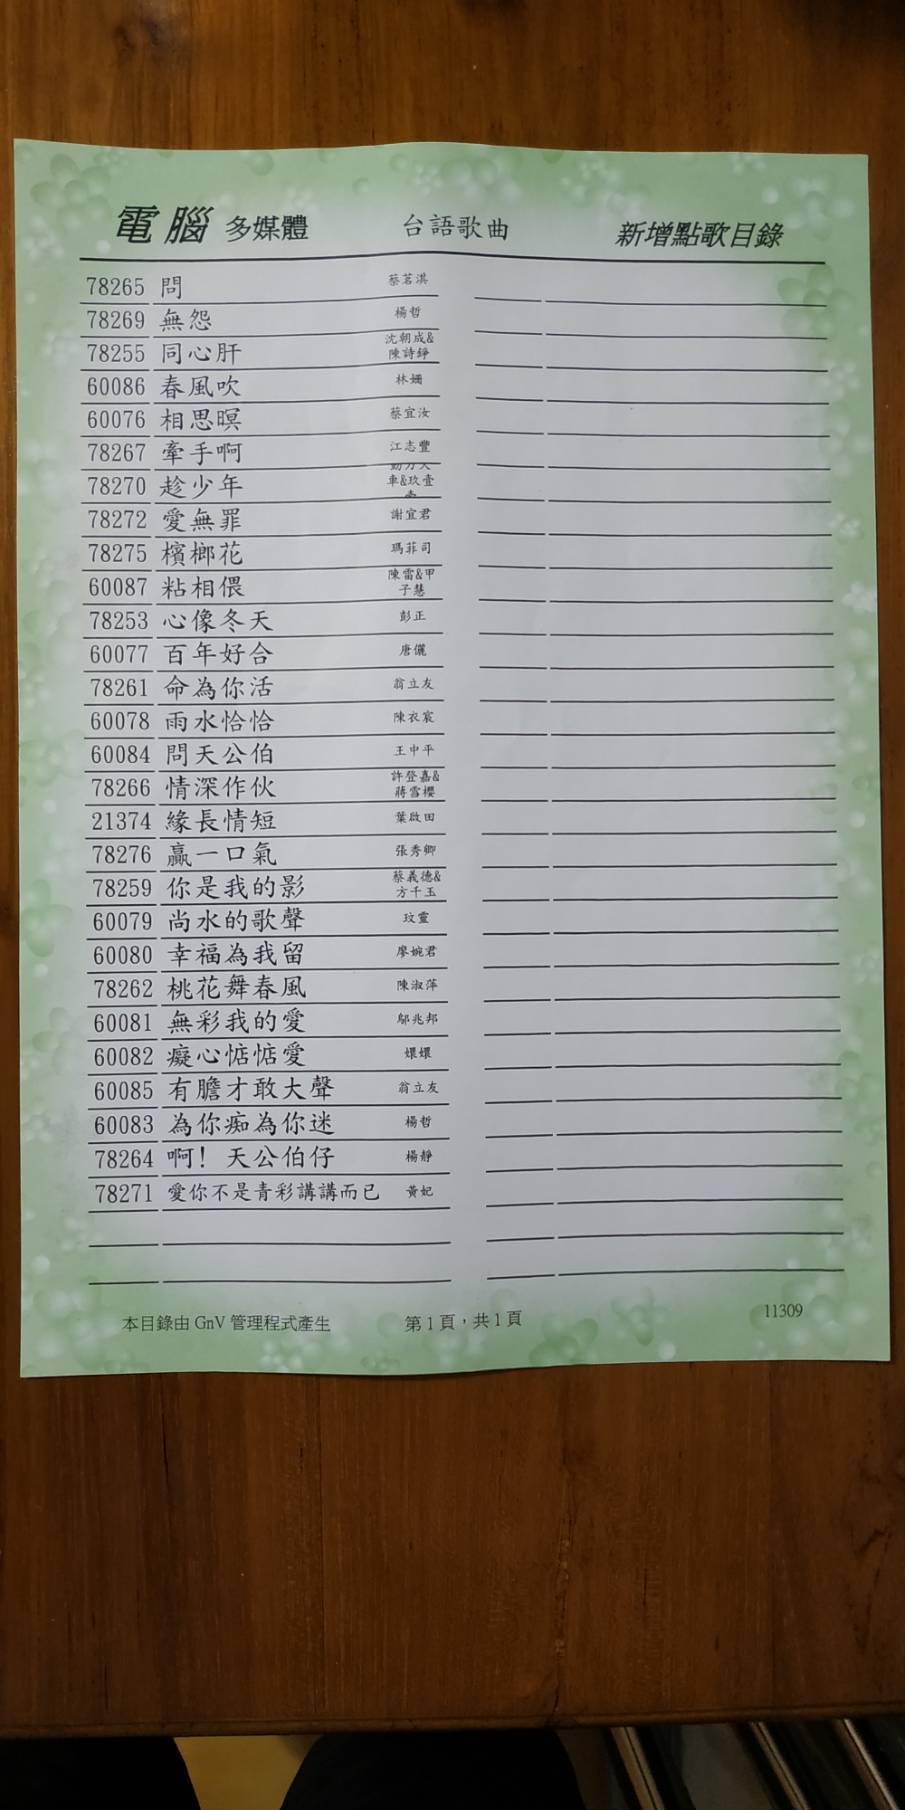 電腦 多媒體 台語歌曲 新增點歌目錄
78265 問 蔡茗淇
78269 無怨 楊哲
78255 同心肝 沈朝成&陳詩錚
60086 春風吹 林姍
60076 相思暝 蔡宜汝
78267 牽手啊 江志豐
78270 趁少年 車&玖壹
78272 愛無罪 謝宜君
78275 檳榔花 瑪菲司
60087 粘相偎 陳雷&甲子慧
78253 心像冬天 彭正
60077 百年好合 唐儷
78261 命為你活 翁立友
60078 雨水恰恰 陳衣宸
60084 問天公伯 王中平
78266 情深作伙 許登嘉&蔣雪櫻
21374 緣長情短 葉啟田
78276 贏一口氣 張秀卿
78259 你是我的影 蔡義德&方千玉
60079 尚水的歌聲 玟靈
60080 幸福為我留 廖婉君
78262 桃花舞春風 陳淑萍
60081 無彩我的愛 鄔兆邦
60082 癡心惦惦愛 嬛嬛
60085 有膽才敢大聲 翁立友
60083 為你痴為你迷 楊哲
78264 啊! 天公伯仔 楊靜
78271 愛你不是青彩講講而已 黃妃
本目錄由 GnV 管理程式產生 第1頁,共1頁 11309